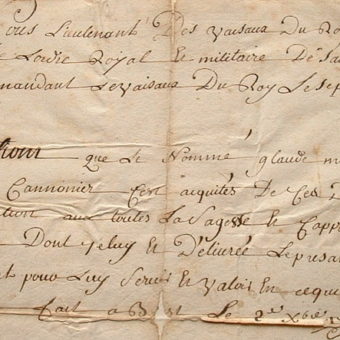 Lieutenant Des Vaisaux Du Ro
Le Lordre Royal et militaire De Sa
mandant Le Vaisaux Du Roy Le Sep
que Le Nommé glaude m
Cannonier C'est aquités De Ces D
tion aux toutes La Sagesse et Cappa
Dont Jeluy et Délivrée Le presan
t pour Luy Servir et Valoir En ceque
fait a B st Le 2e Xbre